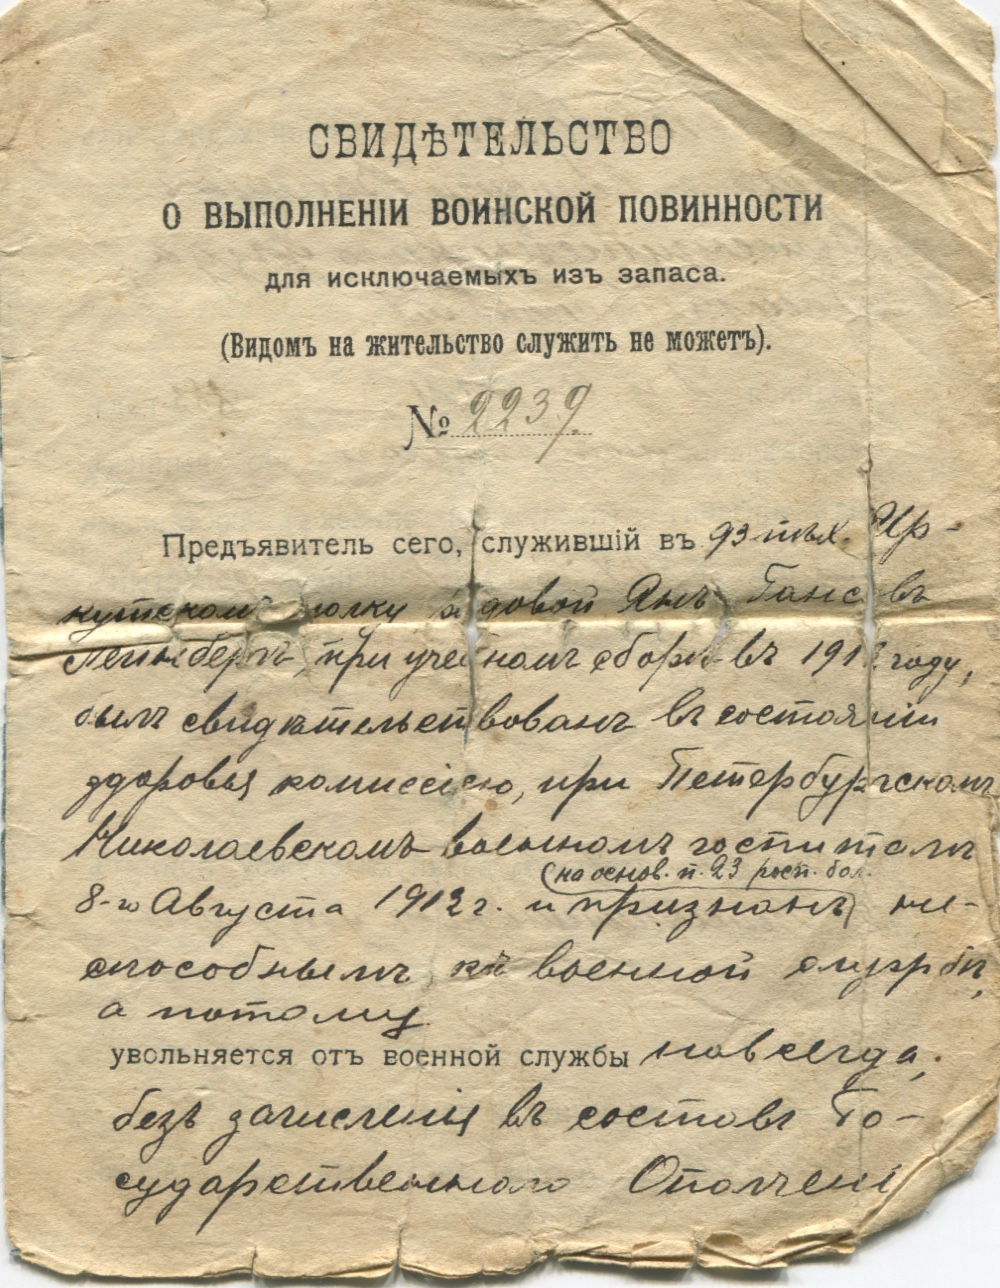 СВИДѢТЕЛЬСТВО
О ВЫПОЛНЕНІИ ВОИНСКОЙ ПОВИННОСТИ
для исключаемыхъ изъ запаса.
(Видомъ на жительство служить не можетъ).
№ 2239
Предъявитель сего, служившій въ 93 пѣх. Ир-
кутскомъ полку довой Янъ
при учебномъ сборѣ въ 191 году,
былъ свидѣтельствованъ въ состояніи
здоровья комиссіею, при Петербургскомъ
Николаевскомъ военномъ госпиталѣ
(на основ. п. 23 росп. бол.
8-го Августа 1912 г. и признанъ) не-
способнымъ къ военной службѣ,
а потому
увольняется отъ военной службы навсегда,
безъ зачисленія въ составъ Го-
сударственнаго Ополчені